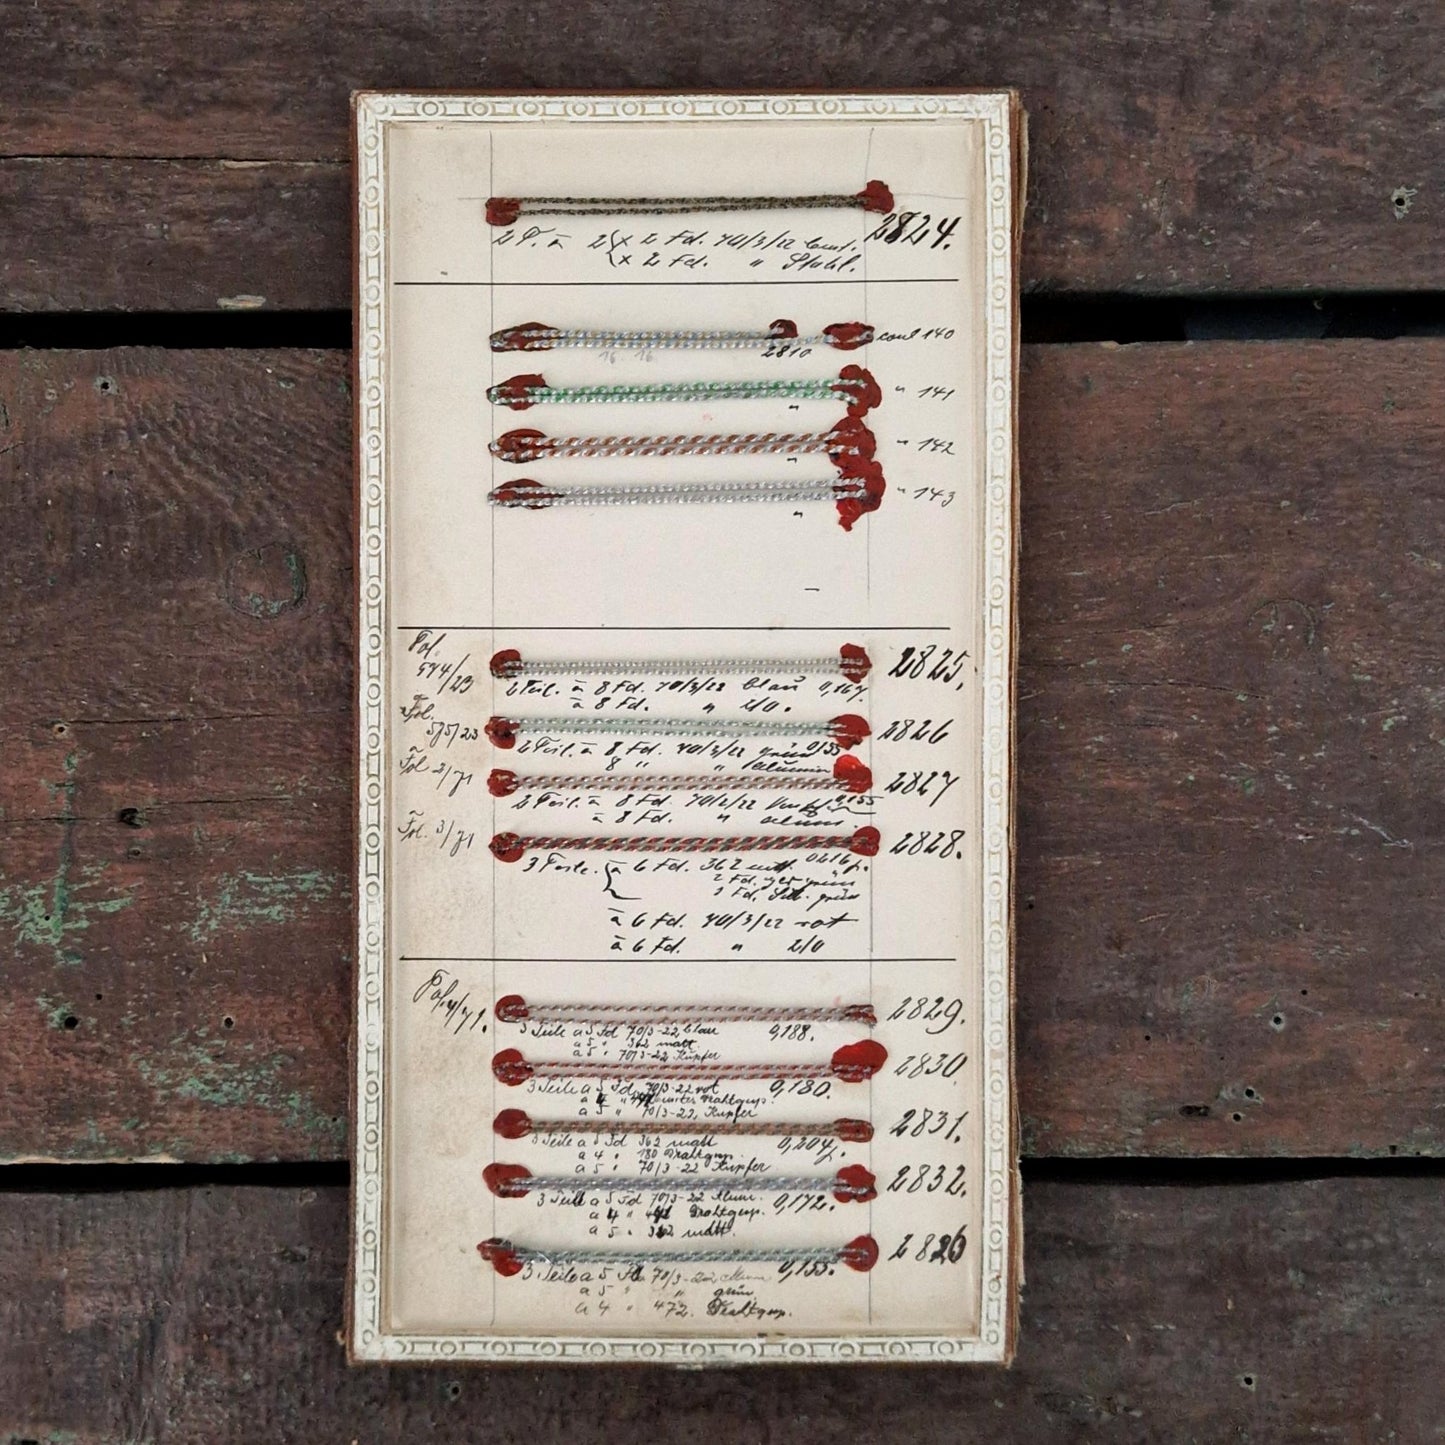 2 T. à 2 { x 2 Fd. 70/3/22
x 2 Fd. " Stahl.
2824.
coul 140
16. 16
2810
" 141
"
" 142
"
" 143
"
–
Fol. 594/23
2825.
2 Teil. à 8 Fd. 70/3/22 blau 0,167.
à 8 Fd. " 2/0.
Fol. 575/23
2826
2 Teil. à 8 Fd. 70/3/22 grün 0,155
8 " " Alumin
Fol 2/71
2827
2 Teil. à 8 Fd. 70/2/22 0,155
à 8 Fd. " Alum.
Fol. 3/71
2828.
3 Teile. { à 6 Fd. 362 matt. 0,216
2 Fd. grün
2 Fd. grün
à 6 Fd. 70/3/22 rot
à 6 Fd. " 2/0
Fol. 4/71.
2829.
3 Teile a 5 Fd 70/3-22 blau 0,188.
a 5 " 362 matt
a 5 " 70/3-22 Kupfer
2830
3 Teile a 5 Fd. 70/3-22 rot 0,180.
a 4 " Drahtgesp.
a 5 " 70/3-22, Kupfer
2831.
3 Teile a 5 Fd 362 matt 0,204
a 4 " 180 Drahtgesp.
a 5 " 70/3-22 Kupfer
2832.
3 Teile a 5 Fd 70/3-22 Alum. 0,172.
a 4 " Drahtgesp.
a 5 " 362 matt.
2826
3 Teile a 5 Fd 70/3-22 Alum 0,155.
a 5 " " grün
a 4 " 472. Drahtgesp.